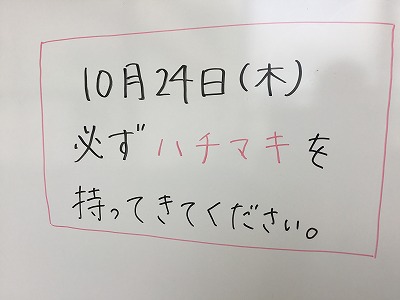 10月24日(木)
必ずハチマキを
持ってきてください。